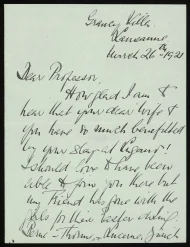 Grancy Villa
Lausanne
March 26th 1921
Dear Professor.
How glad I am to
hear that your dear wife &
you have so much benefitted
by your stay at Lugano!
I should love to have been
able to join you there but
my friend has gone with the
girls for their Easter
- Thoune, - Lucerne, Zurich